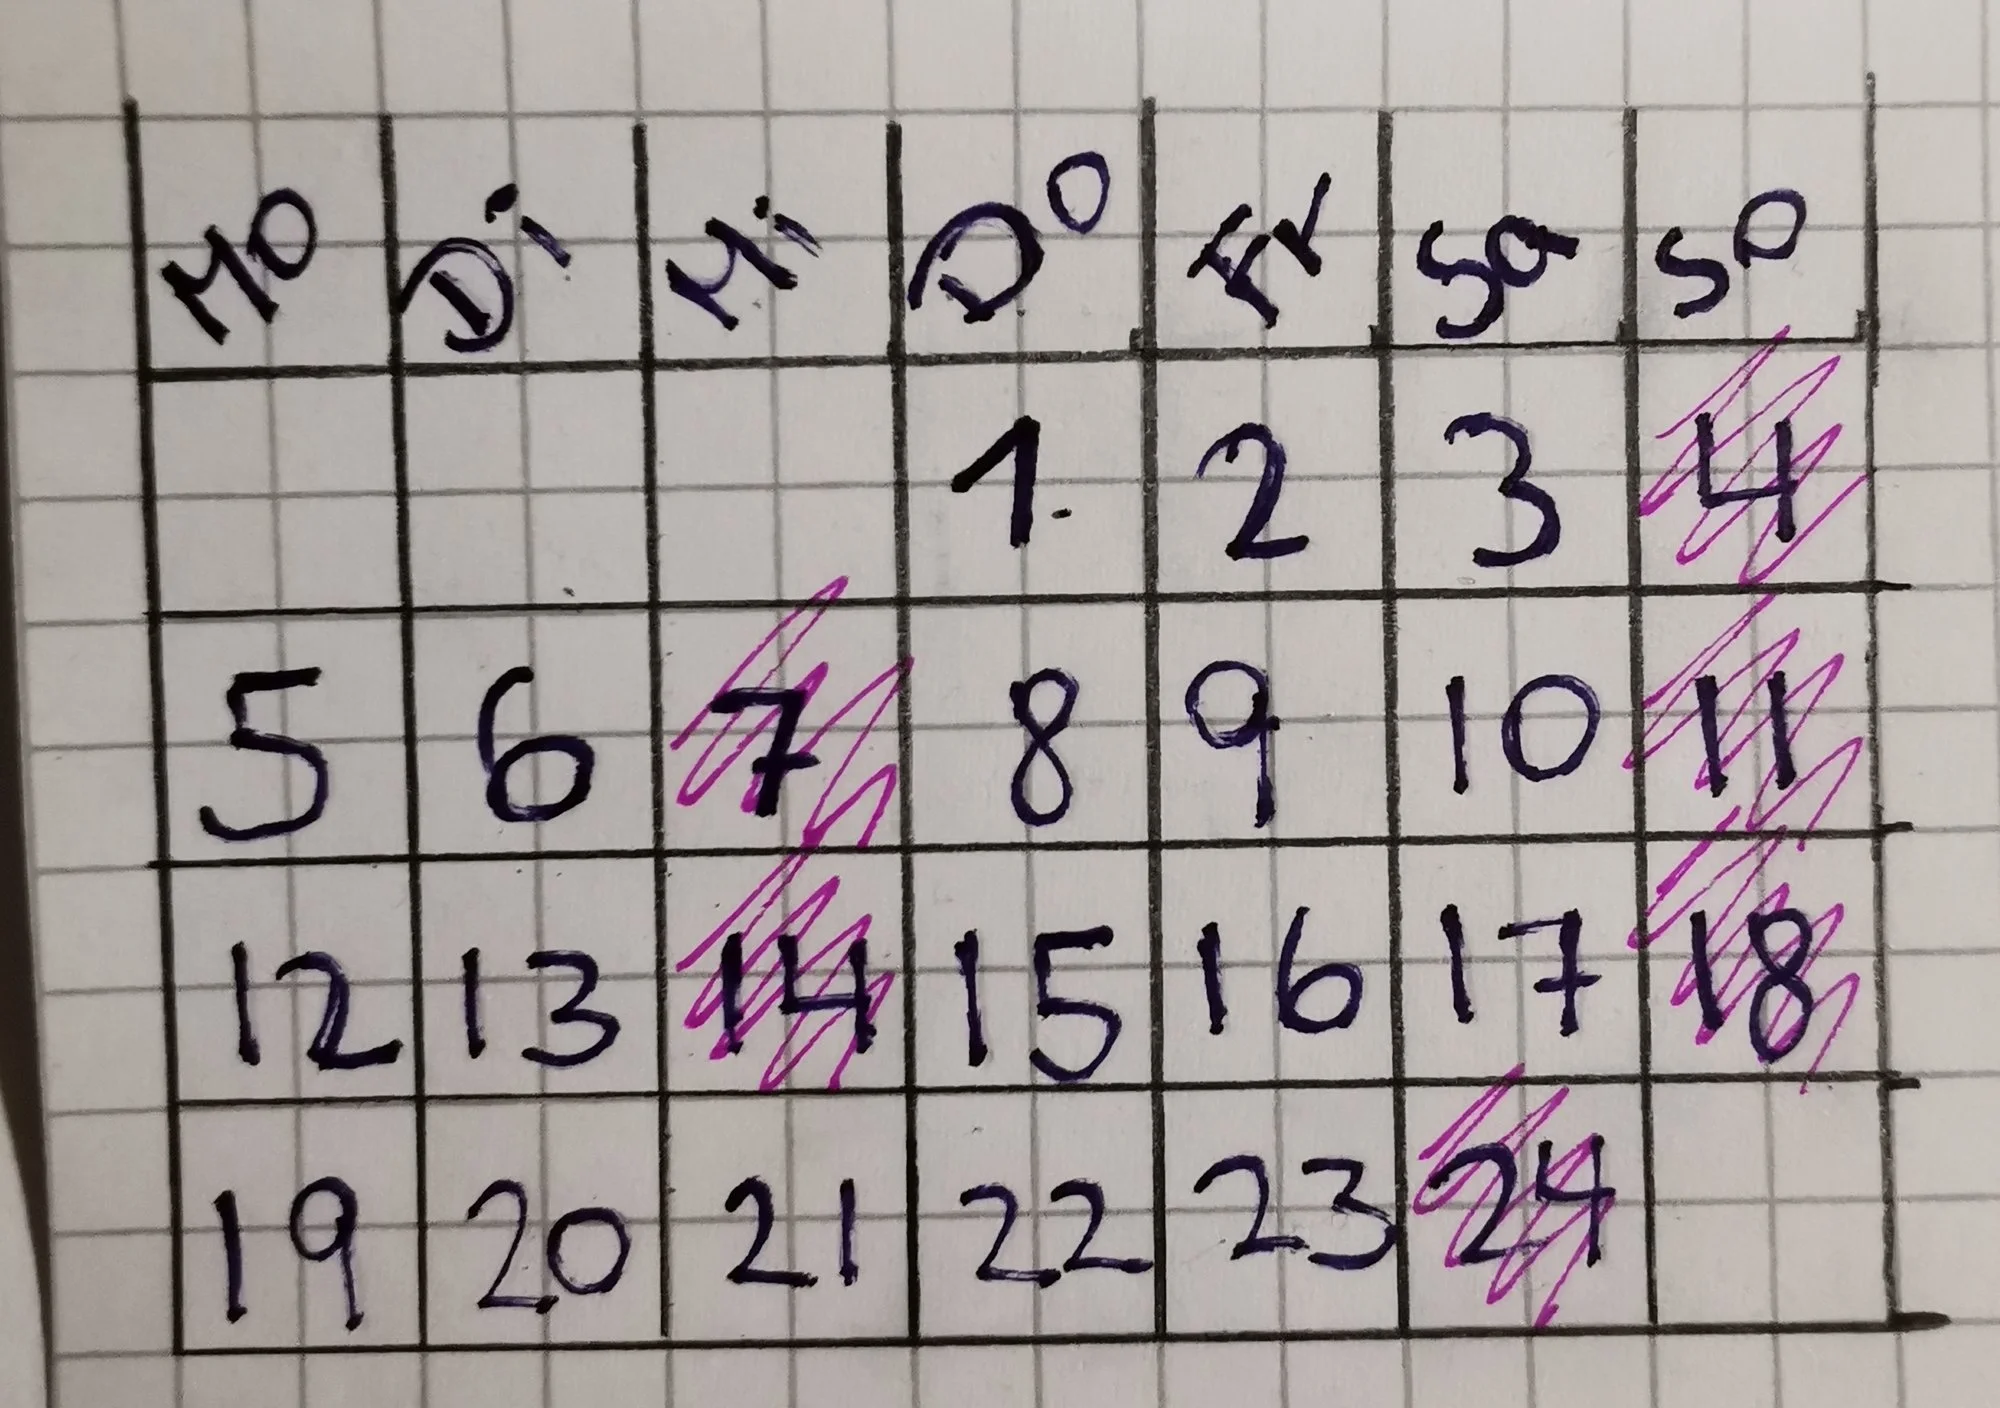 Mo Di Mi Do Fr Sa So
1. 2 3 4
5 6 7 8 9 10 11
12 13 14 15 16 17 18
19 20 21 22 23 24